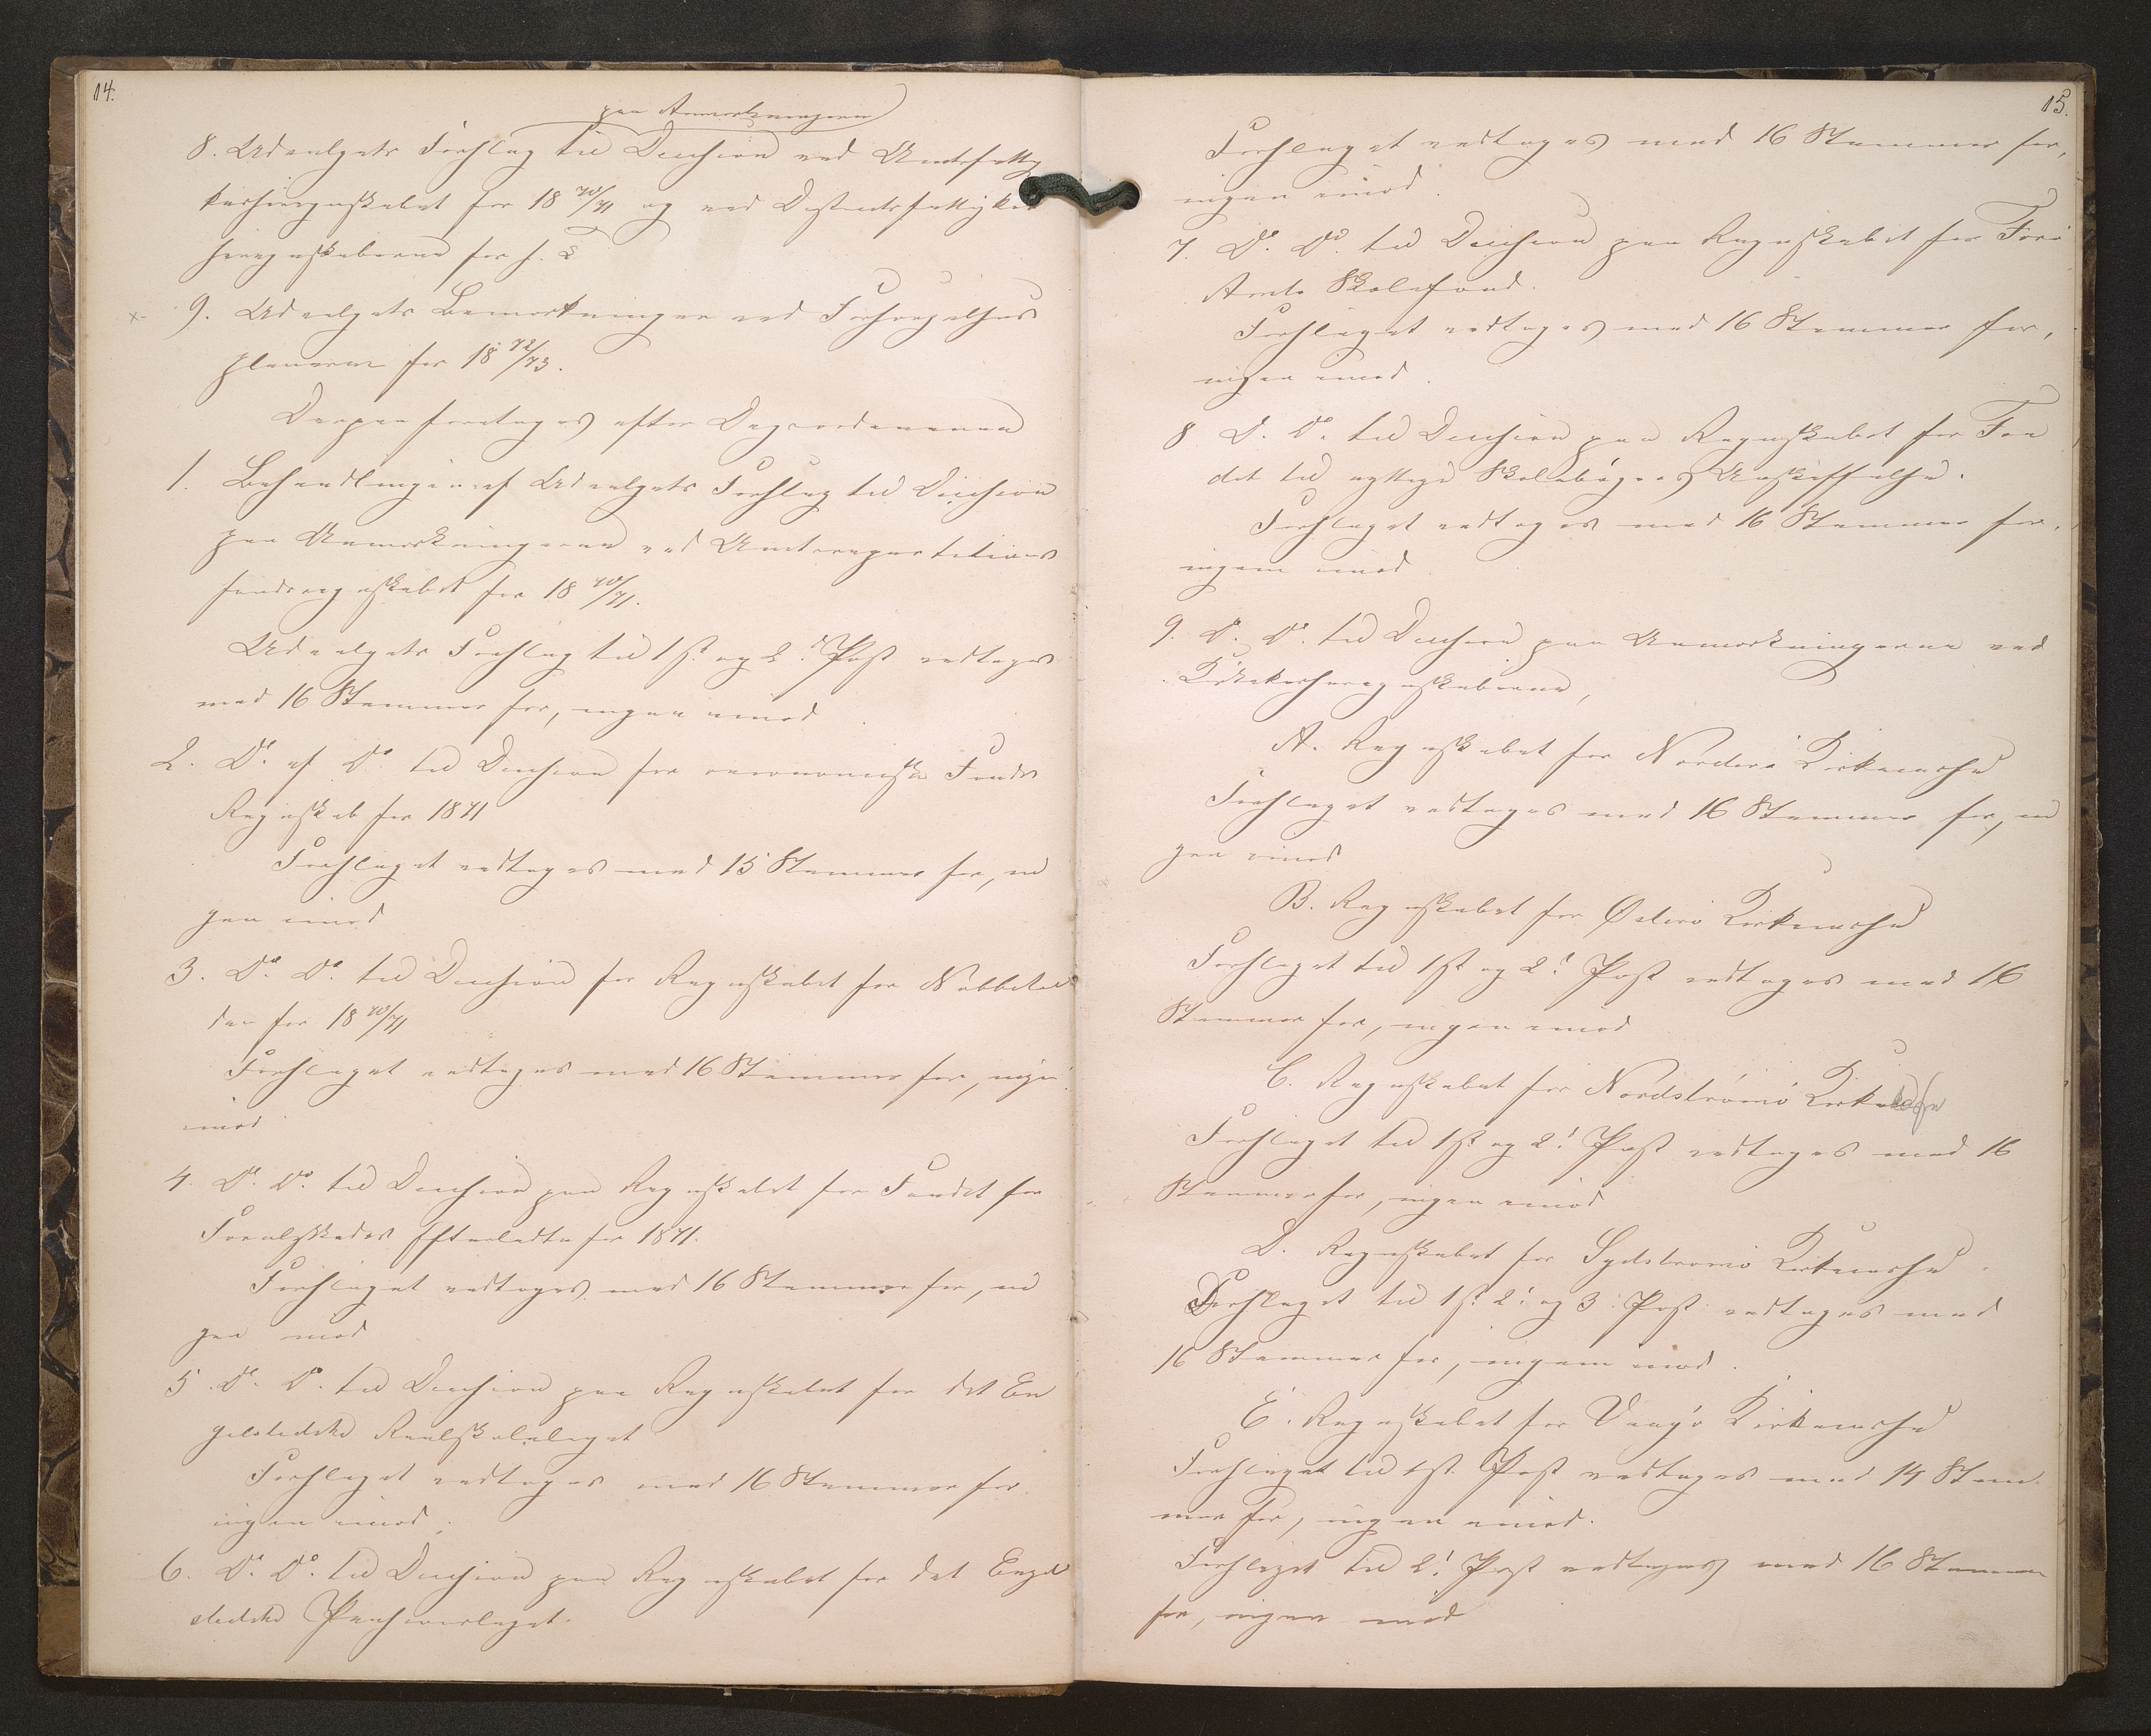 14.
paa Anmærkningerne
8. Udvalgets Forslag til Decision ved Amtsfattig
kasseregnskabet for 18 70/71 og ved Distriktsfattigkas
seregnskaberne for s. T.
x- 9. Udvalgets Bemærkninger ved Forsørgelses
planerne for 18 72/73.
Derpaa foretoges efter Dagsordenen
1. Behandlingen af Udvalgets Forslag til Decision
paa Anmærkningerne ved Amtsrepartitions
fondsregnskabet for 18 70/71.
Udvalgets Forslag til 1ste og 2d. Post vedtoges
med 16 Stemmer for, ingen imod
2. Do. af Do. til Decision for oeconomiske Fonds
Regnskab for 1871
Forslaget vedtoges med 15 Stemmer for, in
gen imod
3. Do. Do. til Decision for Regnskabet for Næbbetol
den for 18 70/71
Forslaget vedtoges med 16 Stemmer for, ingen
imod
4. Do. Do. til Decision paa Regnskabet for Fondet for
Efterladte for 1871.
Forslaget vedtoges med 16 Stemmer for, in
gen imod
5. Do. Do. til Decision paa Regnskabet for det En
gelstedske Realskolelegat
Forslaget vedtoges med 16 Stemmer for
ingen imod.
6. Do. Do. til Decision paa Regnskabet for det Engel
stedske Pensionslegat.
15.
Forslaget vedtoges med 16 Stemmer for,
ingen imod.
7. Do. Do. til Decision paa Regnskabet for Færø
Amts Skolefond.
Forslaget vedtoges med 16 Stemmer for,
ingen imod.
8 Do. Do. til Decision paa Regnskabet for Fon
det til nyttige Skolebøgers Anskaffelse.
Forslaget vedtoges med 16 Stemmer for,
ingen imod
9. Do. Do. til Decision paa Anmærkningerne ved
Kirkekasseregnskaberne,
A. Regnskabet for Norderø Kirkecasse
Forslaget vedtoges med 16 Stemmer for, in
gen imod
B. Regnskabet for Østerø Kirkecasse
Forslaget til 1ste og 2d. Post vedtoges med 16
Stemmer for, ingen imod
C. Regnskabet for Nordstrømø Kirkecasse
Forslaget til 1ste og 2d. Post vedtoges med 16
Stemmer for, ingen imod
D. Regnskabet for Sydstrømø Kirkecasse
Forslaget til 1ste 2d. og 3. Post vedtoges med
16 Stemmer for, ingen imod.
E. Regnskabet for Vaagø Kirkecasse
Forslaget til 1ste Post vedtoges med 14 Stem
mer for, ingen imod.
Forslaget til 2d. Post vedtoges med 16 Stemmer
for, ingen imod